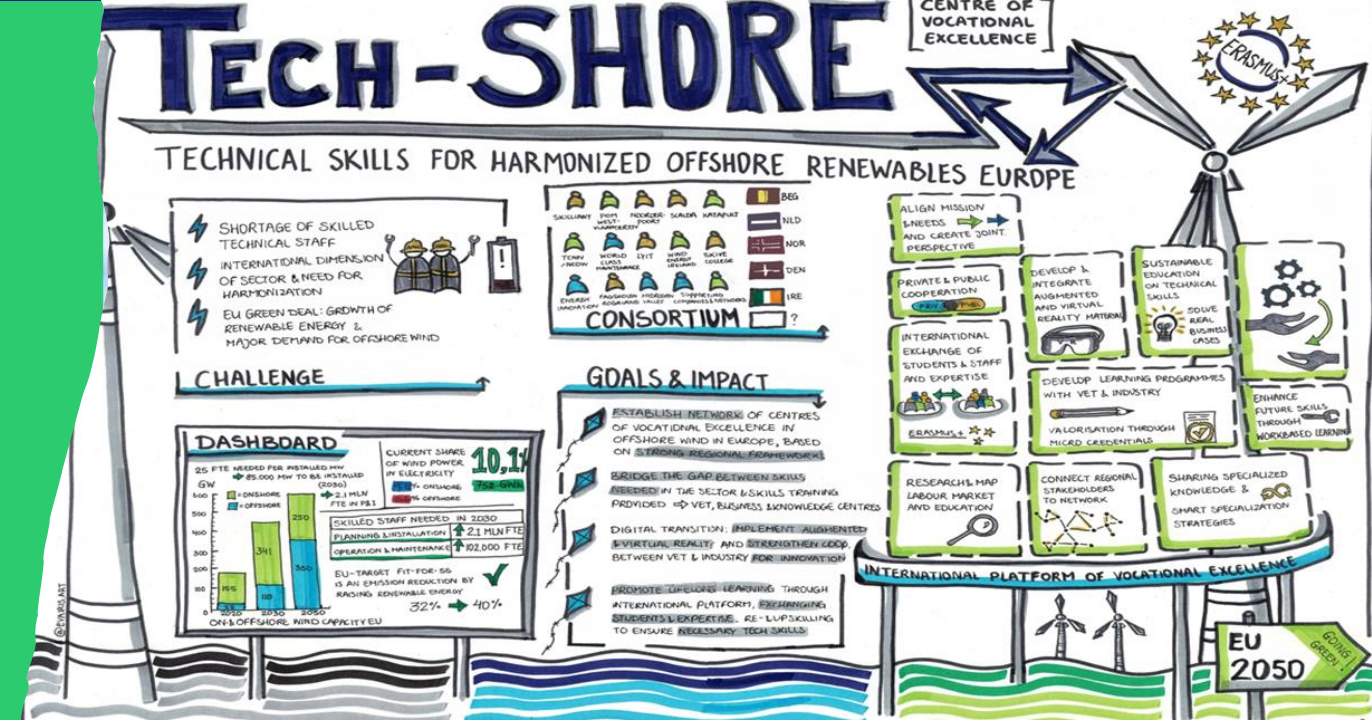 TECH-SHORE
CENTRE OF
VOCATIONAL
EXCELLENCE
ERASMUS+
TECHNICAL SKILLS FOR HARMONIZED OFFSHORE RENEWABLES EUROPE
SHORTAGE OF SKILLED
TECHNICAL STAFF
INTERNATIONAL DIMENSION
OF SECTOR & NEED FOR
HARMONIZATION
EU GREEN DEAL: GROWTH OF
RENEWABLE ENERGY &
MAJOR DEMAND FOR OFFSHORE WIND
CHALLENGE
SKILLIANT
POM
WEST-
VLAANDEREN
NOORDER-
POORT
SCALDA
KATAPULT
WORLD
CLASS
MAINTENANCE
LYIT
WIND
ENERGY
IRELAND
COLLEGE
ENERGY
INNOVATION
VALLEY
SUPPORTING
BEG
NLD
NOR
DEN
IRE
?
CONSORTIUM
DASHBOARD
25 FTE NEEDED PER INSTALLED MW
85.000 MW TO BE INSTALLED
(2030)
2.1 MLN
GW
600
500
400
300
200
100
0
= ONSHORE
= OFFSHORE
341
110
250
350
2020
2030
2050
ON & OFFSHORE WIND CAPACITY EU
CURRENT SHARE
OF WIND POWER
IN ELECTRICITY
% ONSHORE
% OFFSHORE
10,1%
SKILLED STAFF NEEDED IN 2030
PLANNING & INSTALLATION 2.1 MLN FTE
OPERATION & MAINTENANCE 102,000 FTE
EU-TARGET FIT-FOR-55
IS AN EMISSION REDUCTION BY
RAISING RENEWABLE ENERGY
32% 40%
GOALS & IMPACT
ESTABLISH NETWORK OF CENTRES
OF VOCATIONAL EXCELLENCE IN
OFFSHORE WIND IN EUROPE, BASED
ON STRONG REGIONAL FRAMEWORK
BRIDGE THE GAP BETWEEN SKILLS
NEEDED IN THE SECTOR & SKILLS TRAINING
PROVIDED VET, BUSINESS & KNOWLEDGE CENTRES
DIGITAL TRANSITION: IMPLEMENT AUGMENTED
& VIRTUAL REALITY AND STRENGTHEN COOP.
BETWEEN VET & INDUSTRY FOR INNOVATION
PROMOTE LIFELONG LEARNING THROUGH
INTERNATIONAL PLATFORM, EXCHANGING
STUDENTS & EXPERTISE. RE- & UPSKILLING
TO ENSURE NECESSARY TECH SKILLS
ALIGN MISSION
& NEEDS
AND CREATE JOINT
PERSPECTIVE
PRIVATE & PUBLIC
COOPERATION
INTERNATIONAL
EXCHANGE OF
STUDENTS & STAFF
AND EXPERTISE
ERASMUS+
DEVELOP &
INTEGRATE
AUGMENTED
AND VIRTUAL
REALITY MATERIAL
SUSTAINABLE
EDUCATION
ON TECHNICAL
SKILLS
SOLVE
REAL
BUSINESS
CASES
DEVELOP LEARNING PROGRAMMES
WITH VET & INDUSTRY
VALORISATION THROUGH
MICRO CREDENTIALS
ENHANCE
FUTURE SKILLS
THROUGH
WORKBASED LEARNING
RESEARCH & MAP
LABOUR MARKET
AND EDUCATION
CONNECT REGIONAL
STAKEHOLDERS
TO NETWORK
SHARING SPECIALIZED
KNOWLEDGE &
SMART SPECIALIZATION
STRATEGIES
INTERNATIONAL PLATFORM OF VOCATIONAL EXCELLENCE
EU
2050
GOING
GREEN!